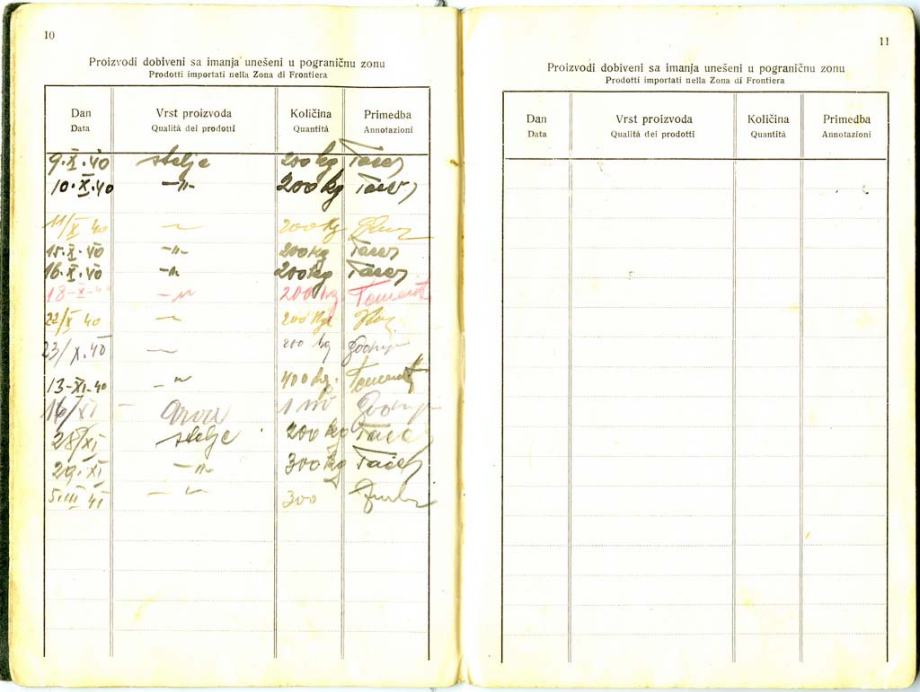 10
Proizvodi dobiveni sa imanja unešeni u pograničnu zonu
Prodotti importati nella Zona di Frontiera
Dan Vrst proizvoda Količina Primedba
Data Qualità dei prodotti Quantità Annotazioni
9.X.40 stelje 200 kg
10.X.40 —"— 200 kg
11/X 40 — 200 kg
15.X.40 —"— 200 kg
16.X.40 —"— 200 kg
18-X-40 —"— 200 kg
22/X 40 — 200 kg
23/X.40 — 200 kg
13-XI-40 —"— 400 kg.
16/XI — drva 1 m
28/XI stelje 200 kg
29.XI —"— 300 kg
5.III 41 —"— 300
11
Proizvodi dobiveni sa imanja unešeni u pograničnu zonu
Prodotti importati nella Zona di Frontiera
Dan Vrst proizvoda Količina Primedba
Data Qualità dei prodotti Quantità Annotazioni